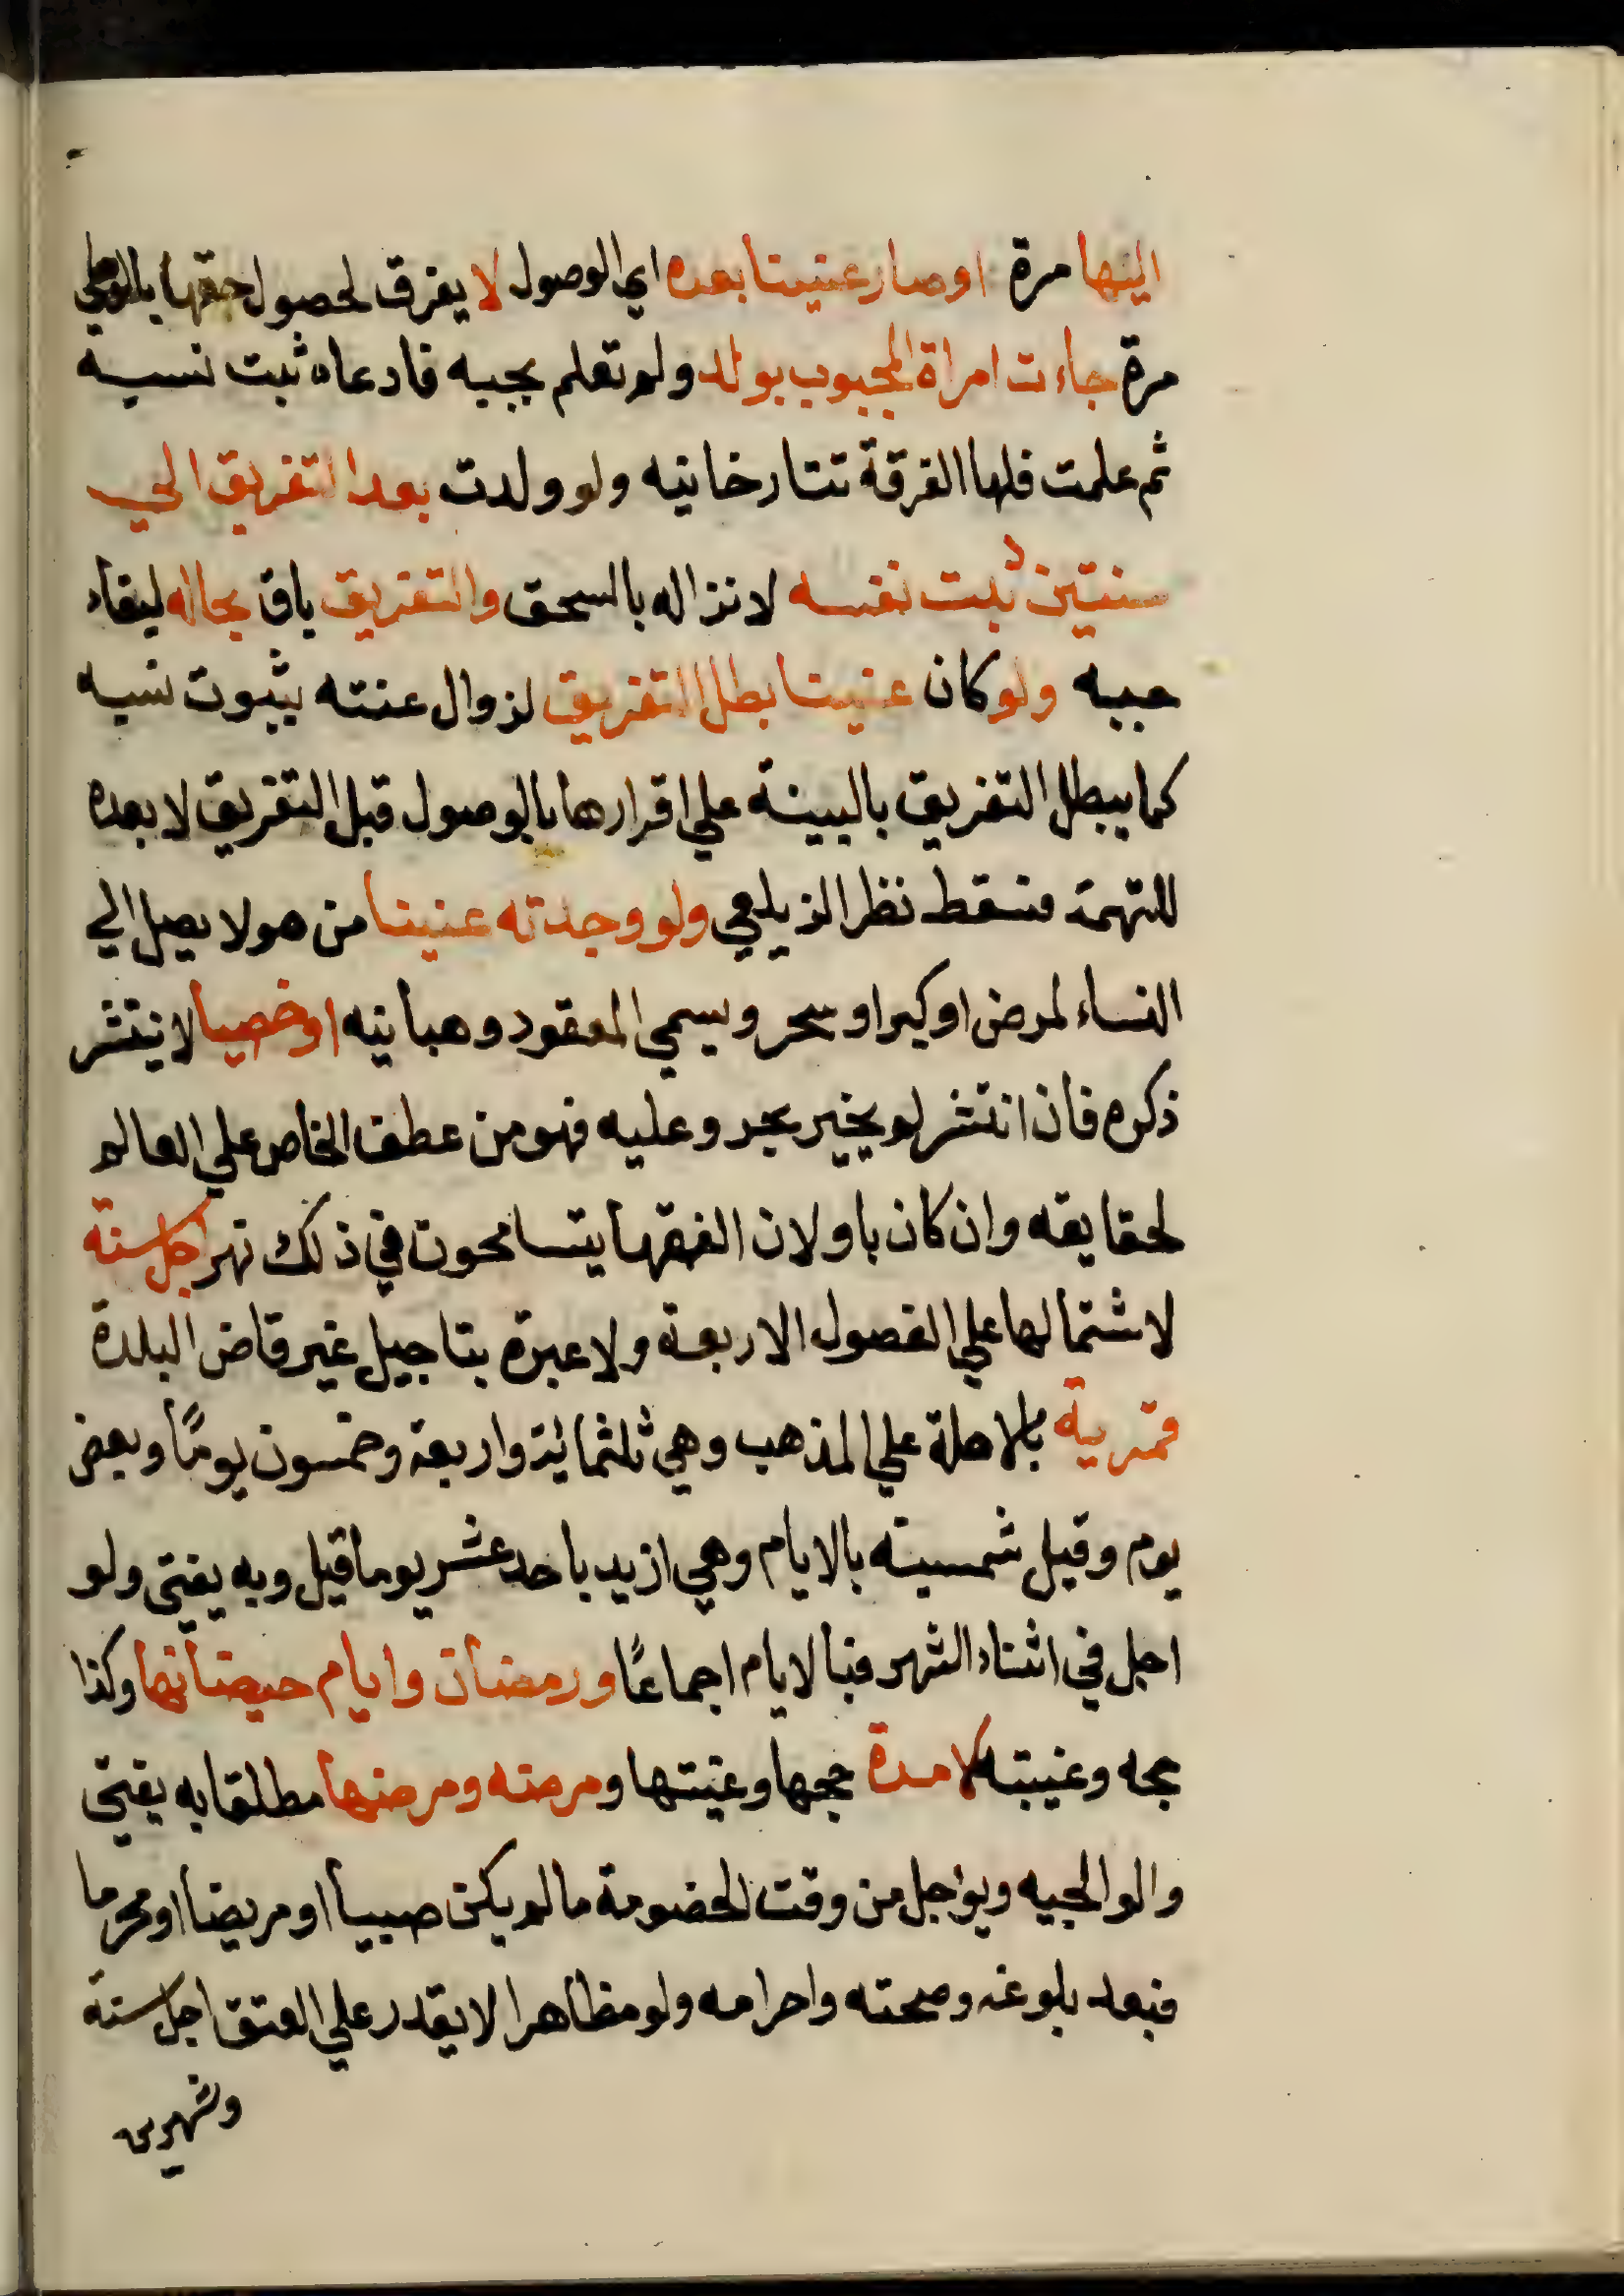 اليها مرة او صار عنينا بعده اي الوصول لا يفرق لحصول حقها بالوطي
مرة جاءت امراة المجبوب بولد ولم تعلم بجبه فادعاه ثبت نسبه
ثم علمت فلها الفرقة تتارخانيه ولو ولدت بعد التفريق الي
سنتين ثبت نفسه لانزاله بالسحق والتفريق باق بحاله لبقاء
جبه ولو كان عنينا بطل التفريق لزوال عنته بثبوت نسبه
كما يبطل التفريق بالبينة علي اقرارها بالوصول قبل التفريق لا بعده
للتهمة فسقط نظر الزيلعي ولو وجدته عنينا من هو لا يصل الي
النساء لمرض او كبر او سحر ويسمي المعقود وهبانيه او خصيا لا ينتشر
ذكره فان انتشر لم يخير بحر وعليه فهو من عطف الخاص علي العالم
لحقايقه وان كان باو لان الفقها يتسامحون في ذلك نهر اجل سنة
لاشتمالها علي الفصول الاربعة ولا عبرة بتاجيل غير قاض البلدة
قمرية بالاهلة علي المذهب وهي ثلثمائة واربعة وخمسون يومًا وبعض
يوم وقيل شمسية بالايام وهي ازيد باحد عشر يوما قيل وبه يفتي ولو
اجل في اثناء الشهر فبالايام اجماعًا ورمضان وايام حيضاتها وكذا
حجه وغيبته لا مدة حجها وغيبتها ومرضه ومرضها مطلقا به يفتي
والوالجيه ويواجل من وقت الخضومة مالم يكن صبيا او مريضا او محرما
فبعد بلوغه وصحته واحرامه ولو مظاهرا لا يقدر علي العتق اجل سنة
وشهرين